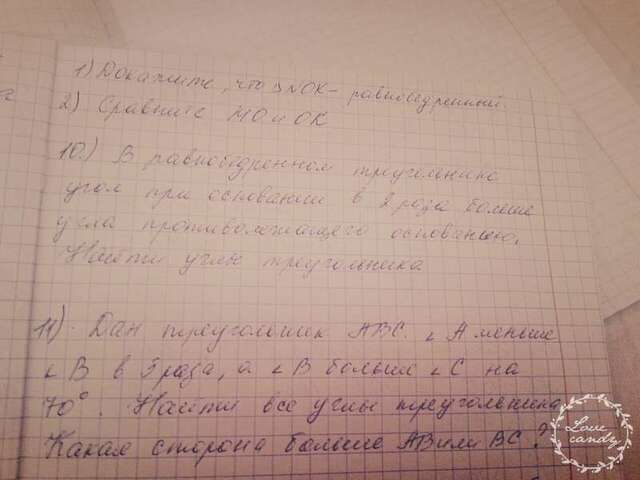 1) Докажите, что △NOK - равнобедренный.
2) Сравните MO и OK
10.) В равнобедренном треугольнике
угол при основании в 2 раза больше
угла противолежащего основанию.
Найти углы треугольника
11). Дан треугольник ABC. ∠A меньше
∠B в 3 раза, а ∠B больше ∠C на
70°. Найти все углы треугольника
Какая сторона больше AB или BC?
Love
candy